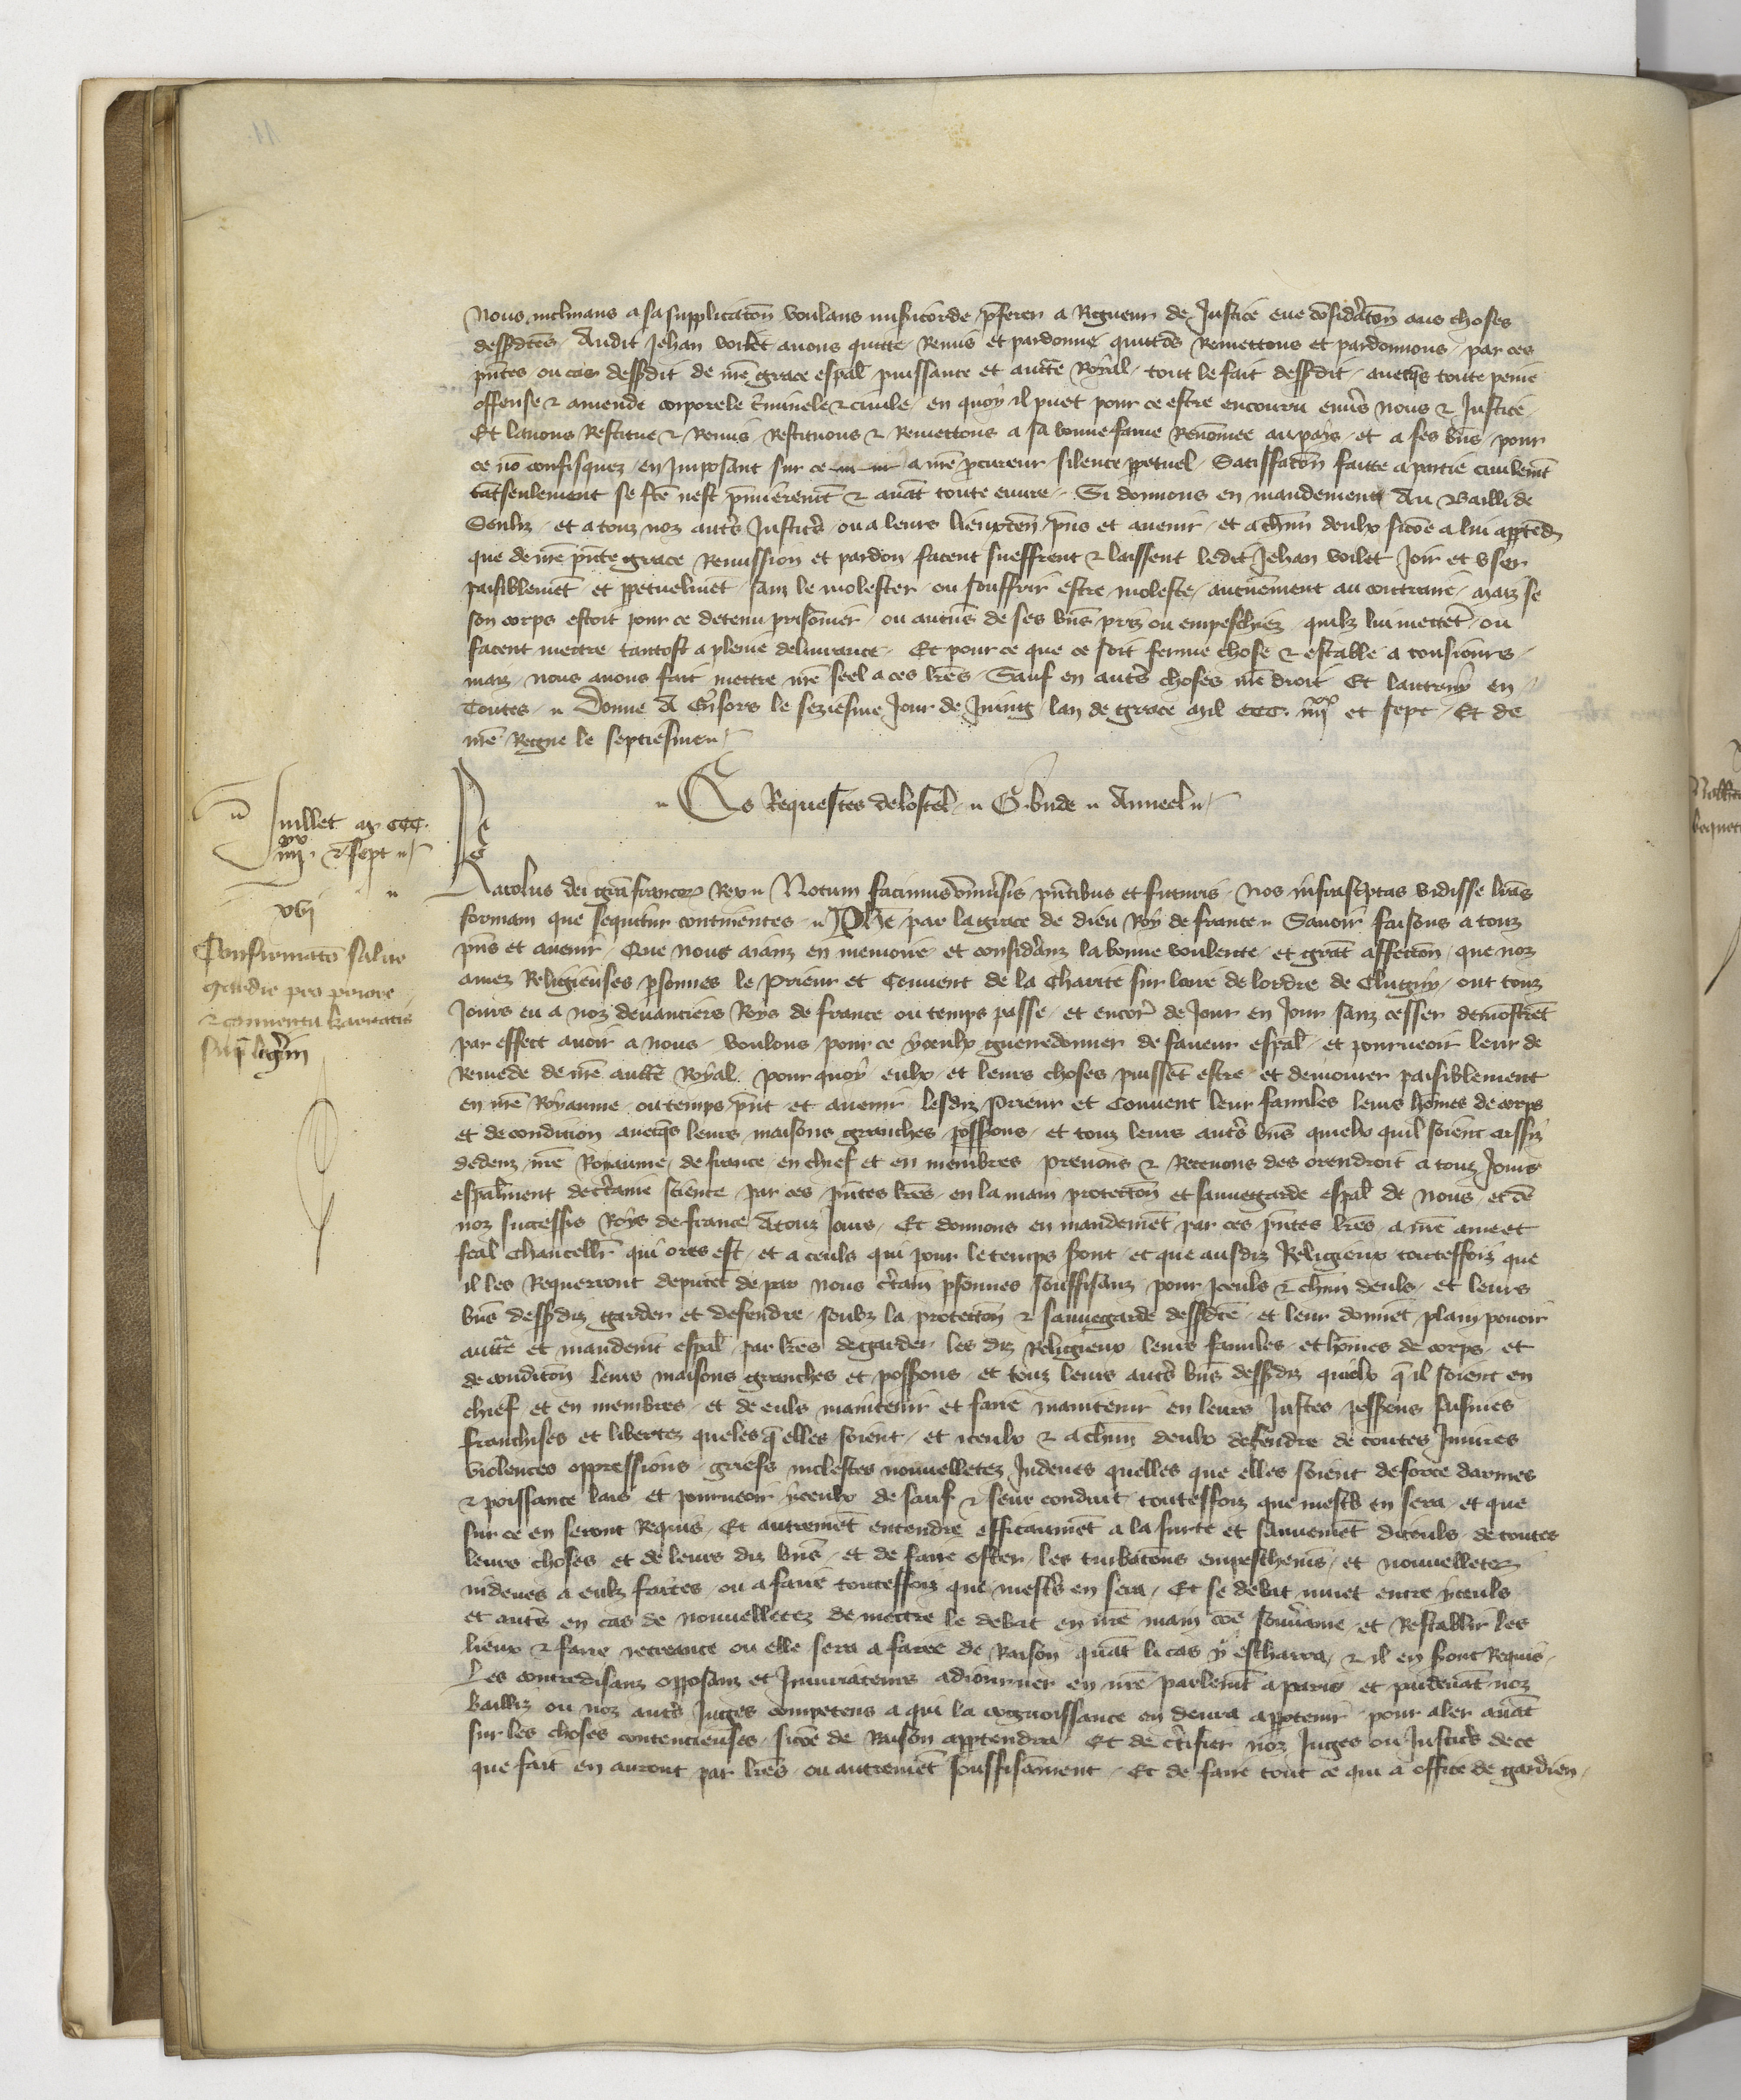 Nous inclinans a sa supplicacōn voulans misericorde p̄ferer a Rigueur de Justice eue cōsideracōn aus choses
dessusdctēs Audit Jehan voilet avons quitte Remis et pardonne quittōs Remettons et pardonnons par ces
pn̄tes ou cas dessusdit de nr̄e grace esp̄al puissance et auctē Royal tout le fait dessusdit avecq̄s toute peine
offense & amende corporele c̄riminele & civile en quoy il puet pour ce estre encouru env̄s nous & Justice
Et lavons Restitue & Remis Restituons & Remettons a sa bonne fame Renōmee au pays et a ses bn̄s pour
ce nō confisquez en Imposant sur ce a nr̄e p̄cureur silence p̄petuel Satisfacōn faitte a partie civilemt̄
tāt seulement se fcē nest p̄mierement & avāt toute euvre Si donnons en mandement Au Bailli de
Senliz et a touz noz autr̄s Justicr̄s ou a leurs lieuxten̄ pn̄s et avenir et a chūn deulx sicōe a lui app̄tēdr̄
que de nr̄e pn̄te grace Remission et pardon facent sueffrent & laissent ledit Jehan voilet Joir et user
paisiblemēt et p̄petuelmēt sanz le molester ou souffrir estre moleste aucunēment au contraire maiz se
son corps estoit pour ce detenu prisōnier ou aucūns de ses bn̄s pris ou empeschiez quilz lui mettēt ou
facent mettre tantost a pleine delivrance Et pour ce que ce soit ferme chose & estable a tousjours
maiz nous avons fait mettre nr̄e seel a ces lr̄es Sauf en autr̄s choses nr̄e droit Et lautruy en
Toutes Donne A Gisors le seziesme Jour de Juing lan de grace mil CCC. iiijxx et sept Et de
nr̄e Regne le septiesme
Es Requestes de lostel G. bude Anneel
Juillet m CCC.
iiijxx & sept
xvij
Confirmatō salve
gardie pro priore
& conventu karitatis
sup̄ ligeri̅m
Karolus dei grā francor̄ Rex Notum facimus univ̄sis pn̄tibus et futuris Nos infrasc̄ptas vidisse lr̄as
formam que sequitur continentes Phē par la grace de dieu Roy de france Savoir faisons a touz
pn̄s et avenir Que nous aianz en memoire et consider̄anz la bonne voulente et grāt affeccōn que noz
amez Religieuses p̄sonnes le Prieur et Convent de la Charite sur loire de lordre de Clugny ont touz
Jours eu a noz devanciers Roys de france ou temps passe et encor̄ de Jour en Jour sanz cesser demōstrēt
par effect avoir a nous voulons pour ce yceulx guerredonner de faveur esp̄al et pourveoir leur de
Remede de nr̄e auctē Royal pour quoy eulx et leurs choses puissēt estre et demourer paisiblement
en nr̄e Royaume ou temps pn̄t et avenir lesdiz Prieur et Convent leur familes leurs hōmes de corps
et de condition avecq̄s leurs maisons granches possessions et touz leurs autr̄s bn̄s quielx quil soient assiz
dedenz nr̄e Royaume de france en chief et en membres prenons & Recevons des orendroit a touz Jours
esp̄alment de c̄taine science par ces pn̄tes lr̄es en la main proteccōn et sauvegarde esp̄al de nous et dē
noz success̄rs Roys de france A touz Jours Et donnons en mandemēt par ces pn̄tes lr̄es a nr̄e ame et
feal Chancellr̄ qui ores est et a ceuls qui pour le temps s̄ont et que ausdiz Religieux toutesfoiz que
il les Requerront deputēt de par nous c̄taines p̄sonnes souffisānz pour Iceuls & chūn deuls et leurs
bn̄s dessusdiz garder et defendre soubz la proteccōn & sauvegarde dessusdcē et leur donnēt plain povoir
auctē et mandemt̄ esp̄al par lr̄es de garder les diz Religieux leurs familes et hōmes de corps et
de condicōn leurs maisons granches et possessions et touz leurs autr̄s bn̄s dessusdiz quielx q̄ il soient en
chief et en membres et de euls maintenir et faire maintenir en leurs Justes possessions saisines
franchises et libertez queles q̄ elles soient et iceulx & a chūn deulx defendre de toutes Injures
violences oppressions griefs molestes nouvelletez Indeues quelles que elles soient de force darmes
& poissance laie et pourveoir yceulx de sauf & seur conduit toutesfoiz que mestr̄ en sera et que
sur ce en seront Requis Et autremēt entendre efficaumēt a la surte et sauvemēt diceuls de toutes
leurs choses et de leurs diz bn̄s et de faire oster les turbacōns empeschemēs et nouvelletez
indeues a eulz faites ou a faire toutesfoiz que mestr̄ en sera Et se debat muet entre yceuls
et autr̄s en cas de nouvelletez de mettre le debat en nr̄e main cōe souv̄aine et Restablir les
lieux & faire recreance ou elle sera a faire de Raison quāt le cas y escharra & il en s̄ont Requis
Les contredisanz opposanz et Injuriateurs adjourner en nr̄e parlemt̄ a paris et p̄ardevāt noz
Bailliz ou noz autr̄s Juges competens a qui la cognoissance en devra app̄tenir pour aler avāt
sur les choses contencieuses sicōe de Raison app̄tendra Et de c̄tifier noz Juges ou Justicr̄s de ce
que fait en auront par lr̄es ou autremēt souffisāment Et de faire tout ce qui a office de gardien